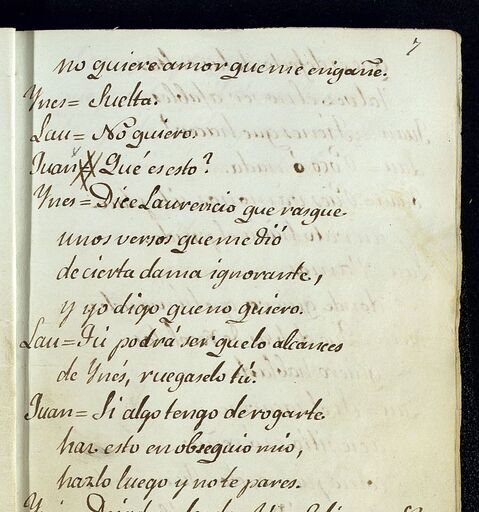 7
no quiere amor que me engañe.
Ynes = Suelta.
Lau = No quiero.
Juan = Qué es esto?
Ynes = Dice Laurevicio que rasgue
unos versos que me dió
de cierta dama ignorante,
y yo digo que no quiero.
Lau = Tú podrá ser que lo alcances
de Ynés, ruegaselo tú.
Juan = Si algo tengo de rogarte
haz esto en obsequio mio,
hazlo luego y no te pares.